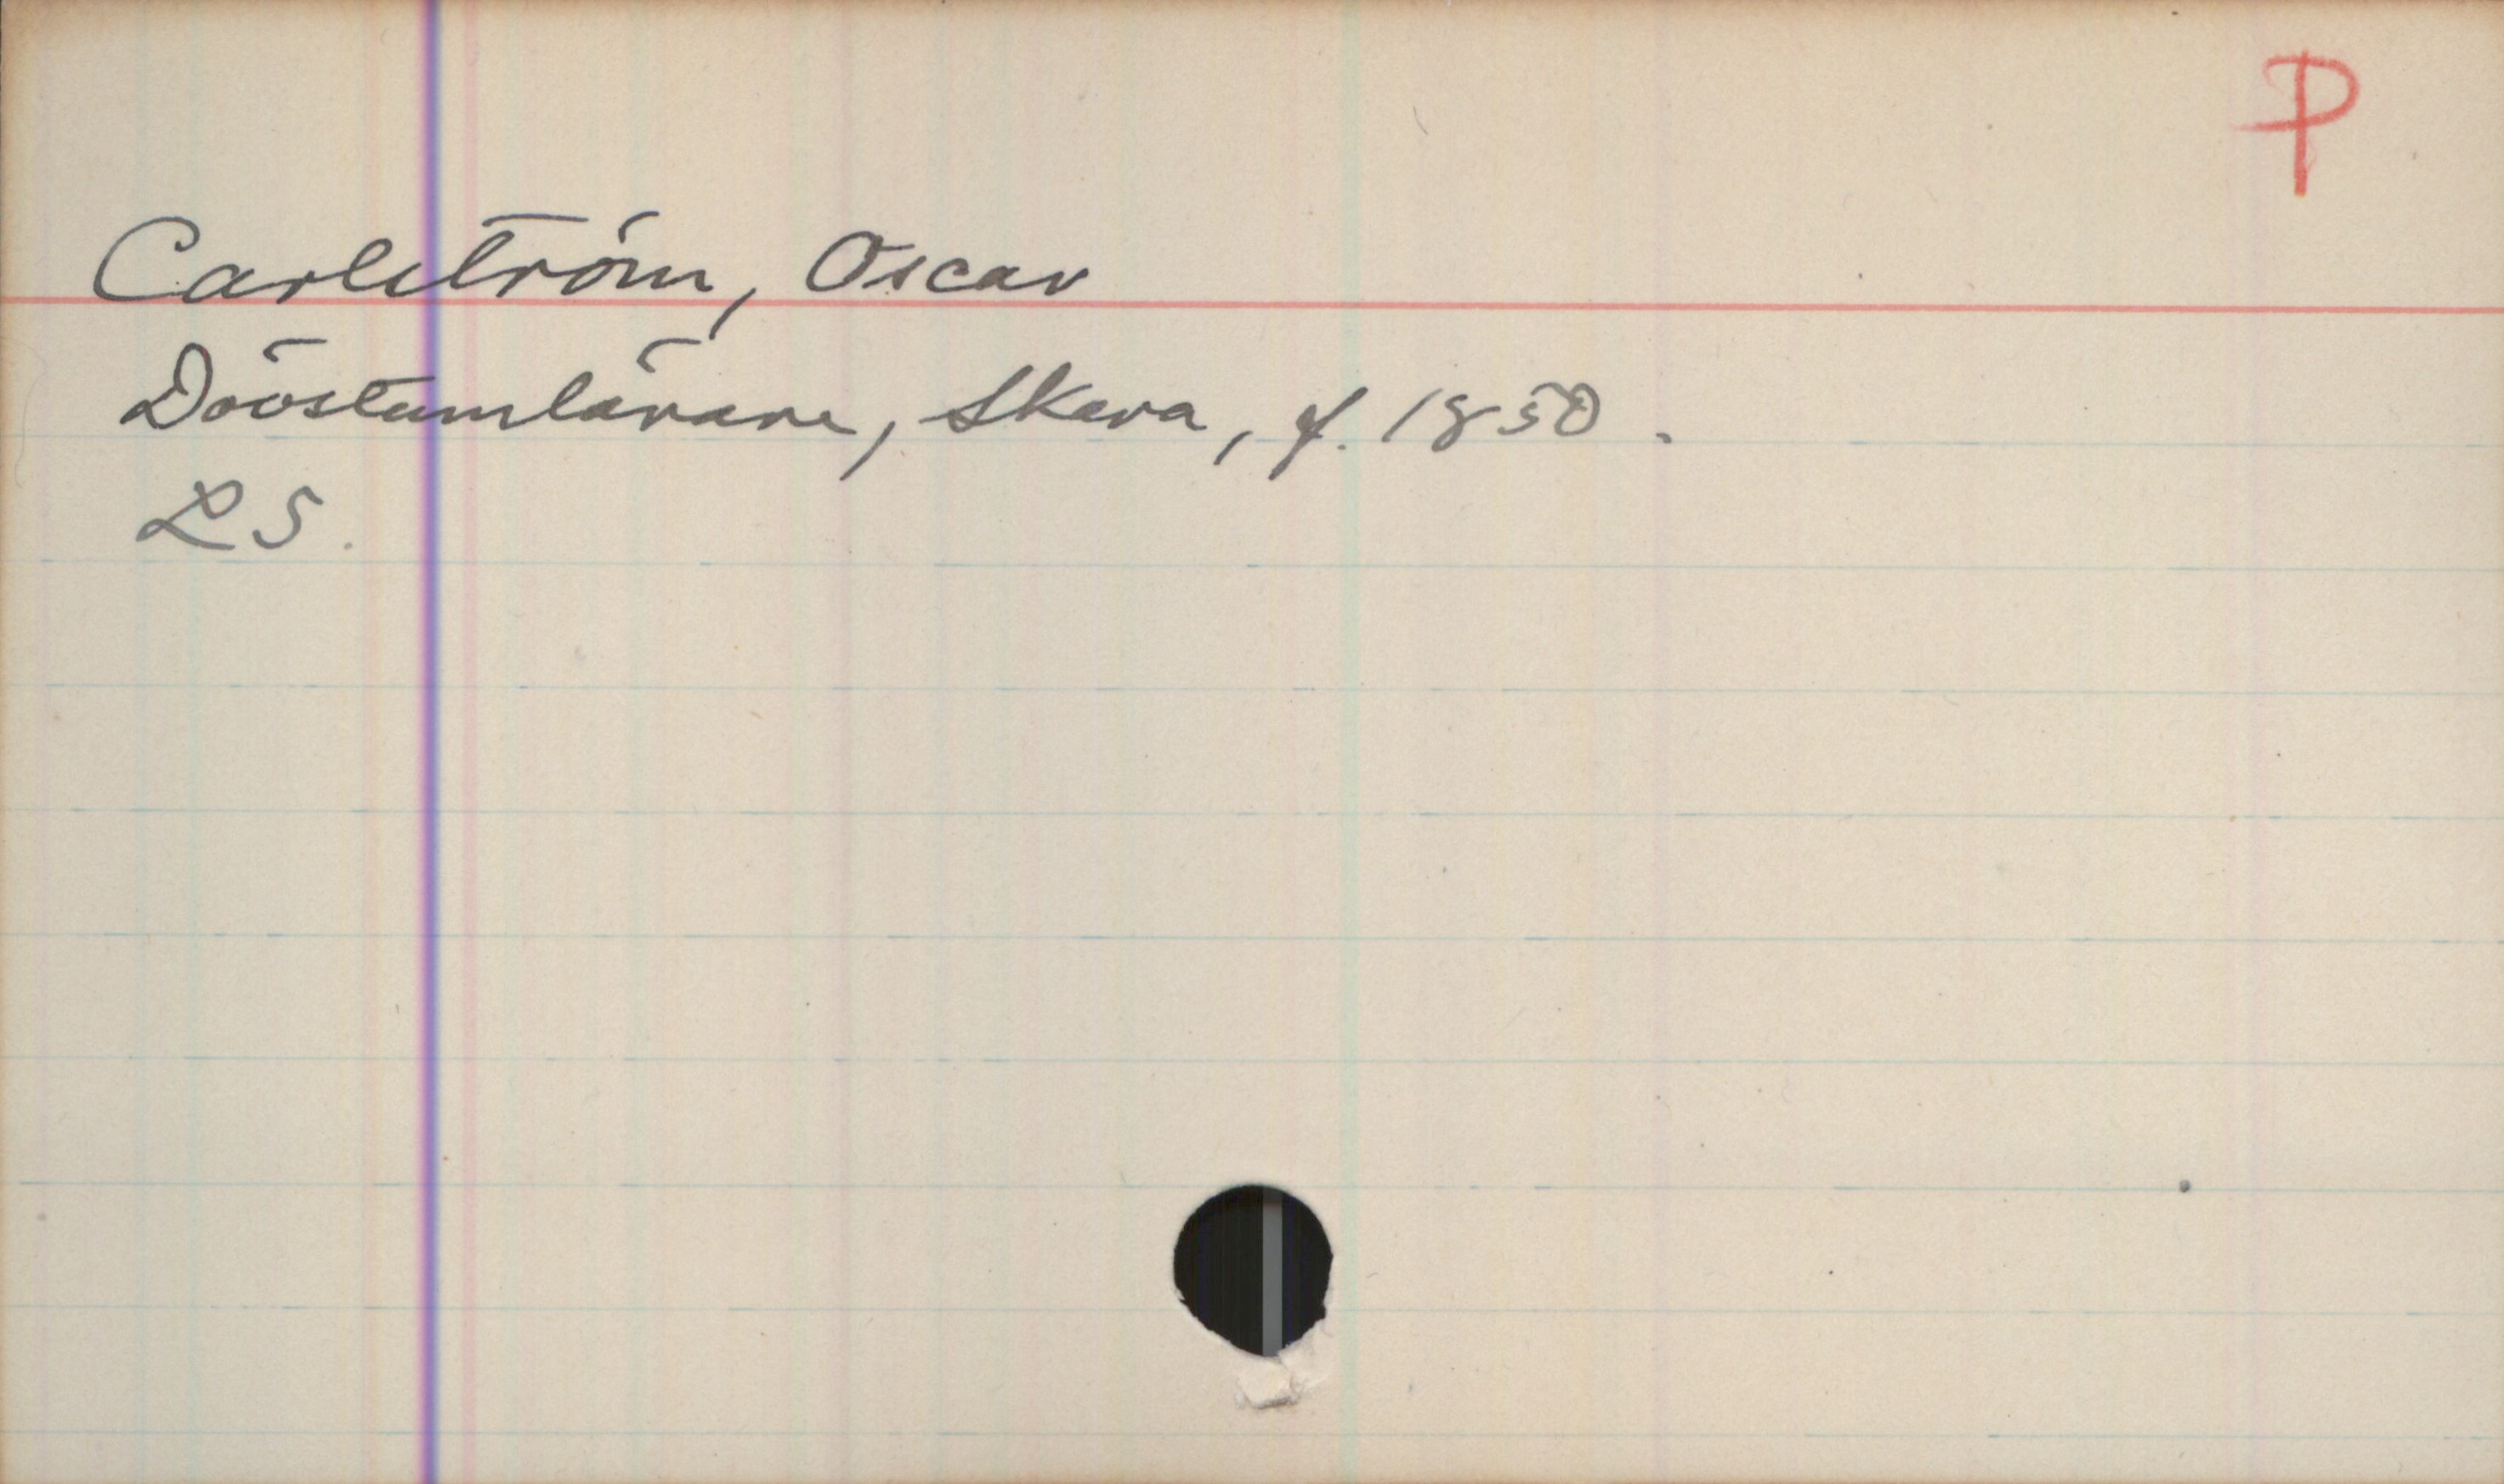 P
Carlström, Oscar
Dövstumlärare, Skara, f. 1850.
LS.